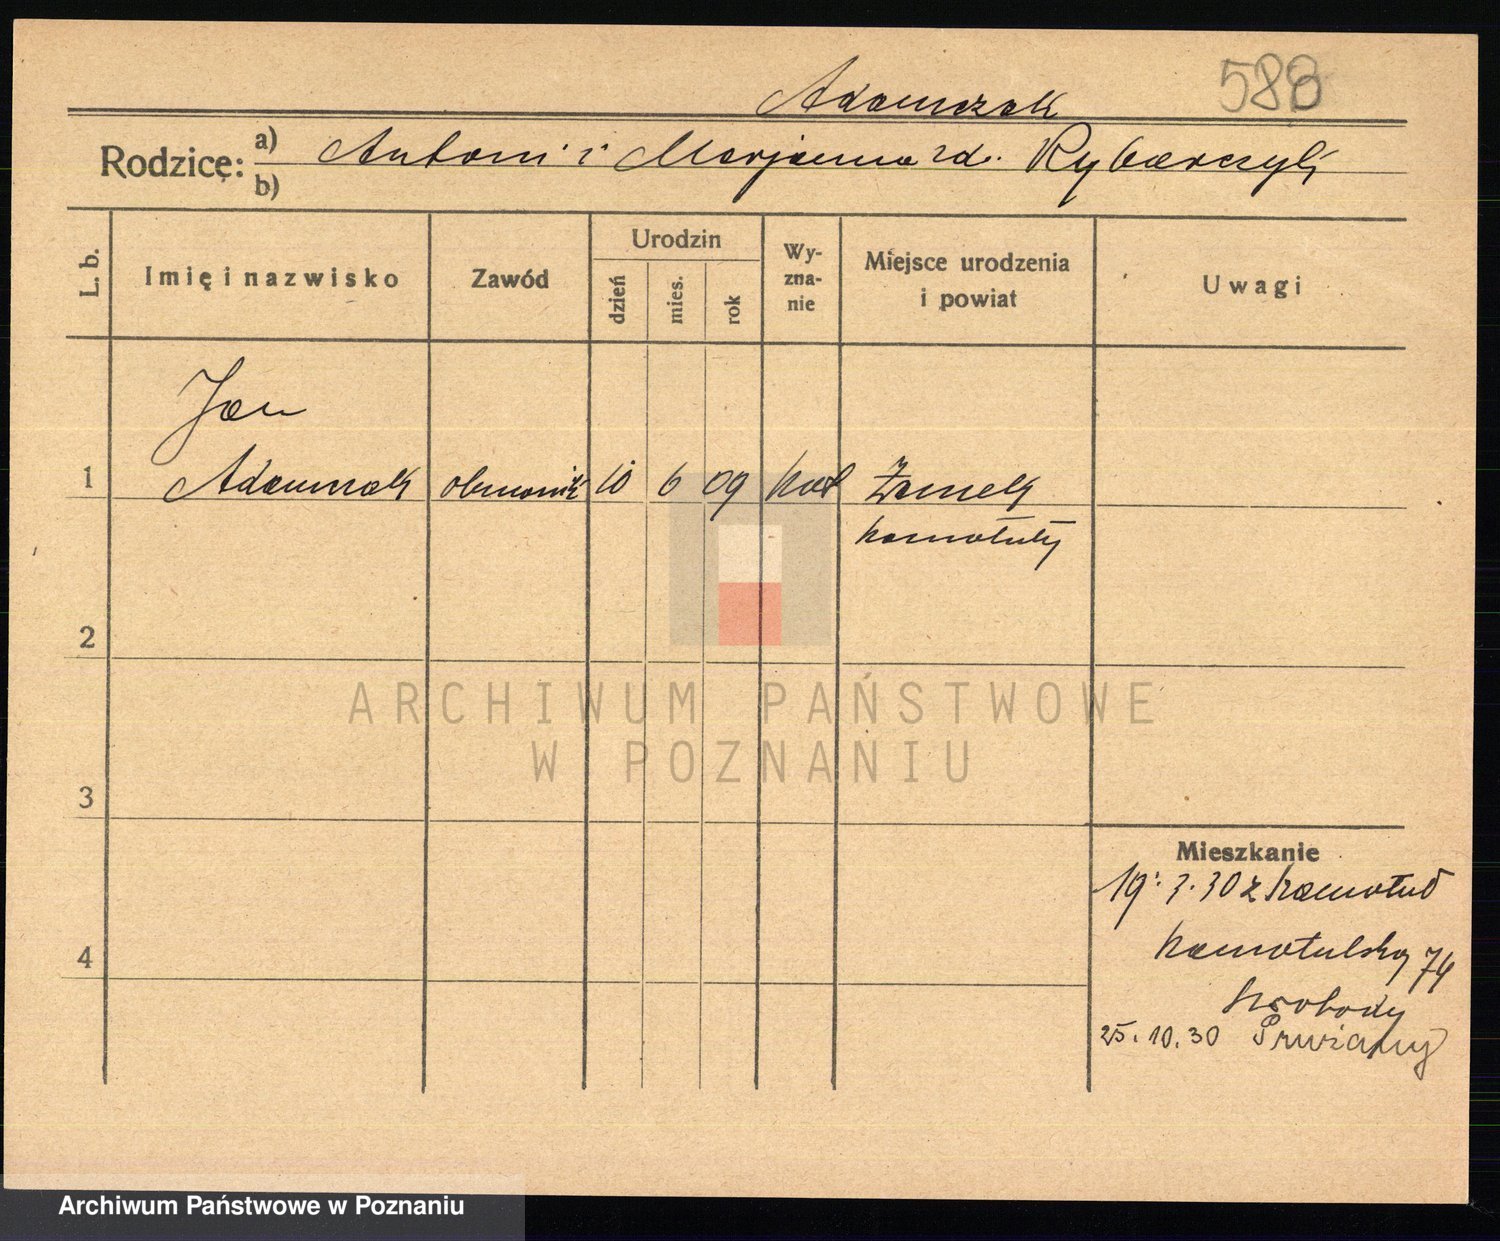 588
Adamczak
Rodzice: a) Antoni i Marjanna zd. Rybarczyk
b)
L. b.
Imię i nazwisko
Zawód
Urodzin
dzień
mies.
rok
Wy-
zna-
nie
Miejsce urodzenia
i powiat
Uwagi
Jan
1 Adamczak 10 6 09 kat Zamek
Szamotuły
2
ARCHIWUM PAŃSTWOWE
W POZNANIU
3
Mieszkanie
19. 3. 30 z Szamotuł
Szamotulska 74
4
25. 10. 30
Archiwum Państwowe w Poznaniu